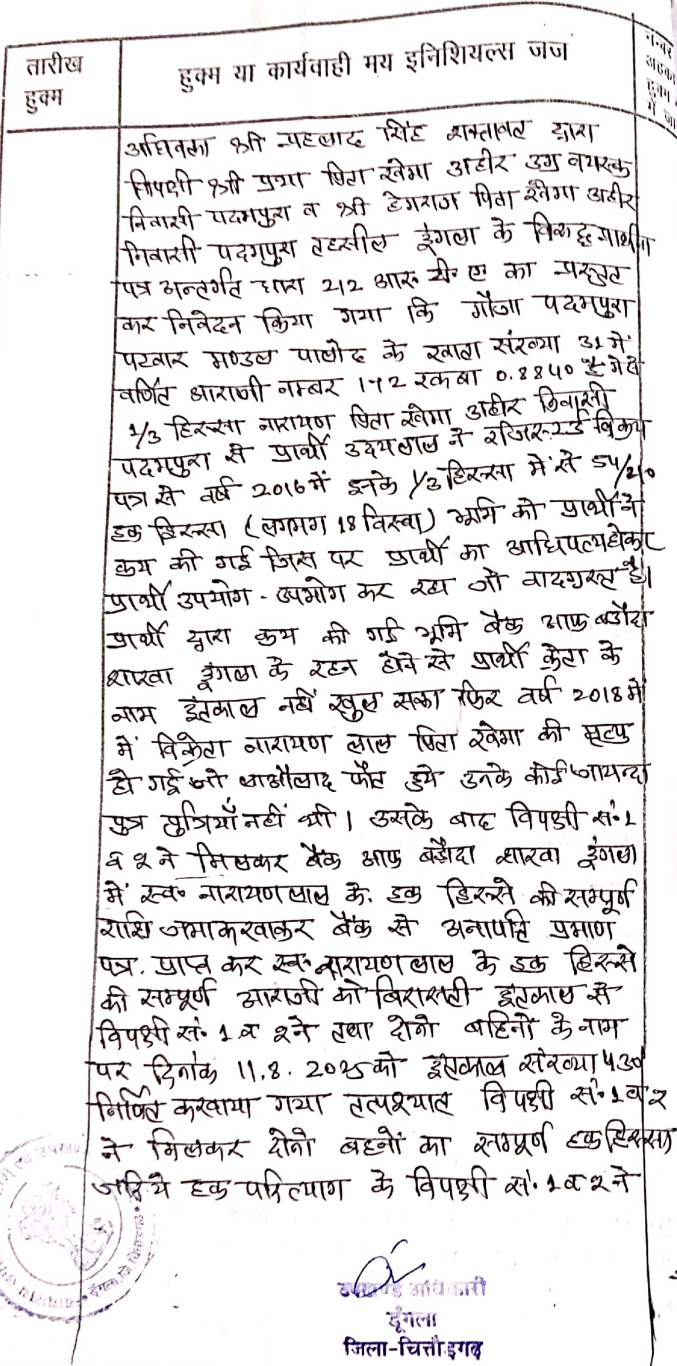 तारीख
हुक्म
हुक्म या कार्यवाही मय इनिशियल्स जज
नम्बर
हुक्म
में जा
अधिवक्ता श्री प्रहलाद सिंह शक्तावत द्वारा
विपक्षी श्री प्रभा पिता खेमा अहीर उम्र वयस्क
निवासी पदमपुरा व श्री हेमराज पिता खेमा अहीर
निवासी पदमपुरा तहसील डूंगला के विरूद्ध प्रार्थना
पत्र अन्तर्गत धारा 212 आर. टी. ए का प्रस्तुत
कर निवेदन किया गया कि मौजा पदमपुरा
पटवार मण्डल पालोद के खाता संख्या 31 में
वर्णित आराजी नम्बर 172 रकबा 0.8840 है मे से
1/3 हिस्सा नारायण पिता खेमा अहीर निवासी
पदमपुरा से प्रार्थी उदयलाल ने रजिस्टर्ड विक्रय
पत्र से वर्ष 2016 में इनके 1/3 हिस्सा में से 54/210
हक हिस्सा (लगभग 18 विस्वा) भूमि को प्रार्थी ने
क्रय की गई जिस पर प्रार्थी का आधिपत्य होकर
प्रार्थी उपयोग - उपभोग कर रहा जो वादग्रस्त है।
प्रार्थी द्वारा क्रय की गई भूमि बैंक आफ बडौदा
शाखा डूंगला के रहन होने से प्रार्थी क्रेता के
नाम इंतकाल नहीं खुल सका फिर वर्ष 2018 में
में विक्रेता नारायण लाल पिता खेमा की मृत्यु
हो गई जो लाऔलाद फौत हुये उनके कोई जायन्दा
पुत्र पुत्रियाँ नहीं थी। उसके बाद विपक्षी सं. 1
व 2 ने मिलकर बैंक आफ बडौदा शाखा डूंगला
में स्व. नारायण लाल के हक हिस्से की सम्पूर्ण
राशि जमा करवाकर बैंक से अनापत्ति प्रमाण
पत्र प्राप्त कर स्व. नारायण लाल के हक हिस्से
की सम्पूर्ण आराजी को विरासती इंतकाल से
विपक्षी सं. 1 व 2 ने तथा दोनो बहिनों के नाम
पर दिनांक 11.8.2025 को इंतकाल संख्या 430
निर्णित करवाया गया तत्पश्चात विपक्षी सं. 1 व 2
ने मिलकर दोनो बहनों का सम्पूर्ण हक हिस्सा
जरिये हक परित्याग के विपक्षी सं. 1 व 2 ने
उपखण्ड अधिकारी
डूंगला
जिला-चित्तौड़गढ़